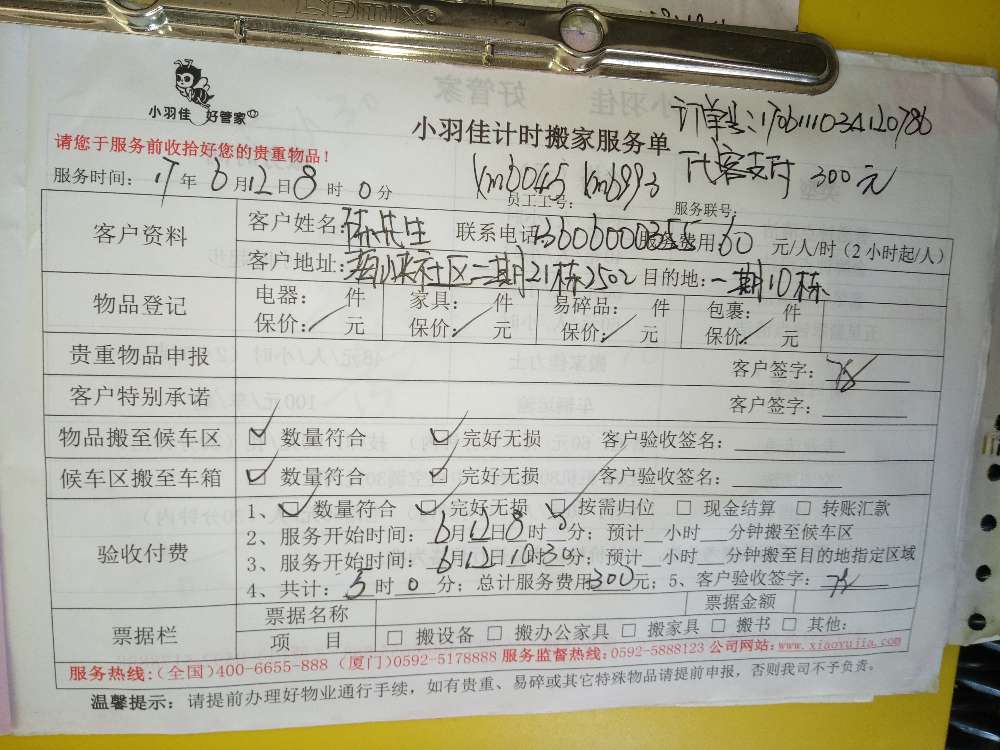 小羽佳 好管家
小羽佳计时搬家服务单
订单号:170611103412078b
代客支付 300元
请您于服务前收拾好您的贵重物品!
服务时间: 17年6月12日8时0分
员工工号: km6045 km6993
服务联号:
客户资料
客户姓名: 陈先生 联系电话: 13606000355 服务费用: 60 元/人/时(2小时起/人)
客户地址: 社区二期21栋2502 目的地: 一期10栋
物品登记
电器: 件 家具: 件 易碎品: 件 包裹: 件
保价: 元 保价: 元 保价: 元 保价: 元
贵重物品申报 客户签字:
客户特别承诺 客户签字:
物品搬至候车区 ☑ 数量符合 ☑ 完好无损 客户验收签名:
候车区搬至车箱 ☑ 数量符合 ☑ 完好无损 客户验收签名:
验收付费
1、☑ 数量符合 ☑ 完好无损 ☑ 按需归位 □ 现金结算 □ 转账汇款
2、服务开始时间: 6月12日8时0分; 预计__小时___分钟搬至候车区
3、服务开始时间: 6月12日10时30分; 预计__小时___分钟搬至目的地指定区域
4、共计: 5时0分; 总计服务费用300元; 5、客户验收签字:
票据栏
票据名称 票据金额
项 目 □ 搬设备 □ 搬办公家具 □ 搬家具 □ 搬书 □ 其他:
服务热线:(全国)400-6655-888 (厦门)0592-5178888 服务监督热线:0592-5888123 公司网站:www.xiaoyujia.com
温馨提示: 请提前办理好物业通行手续,如有贵重、易碎或其它特殊物品请提前申报,否则我司不予负责。